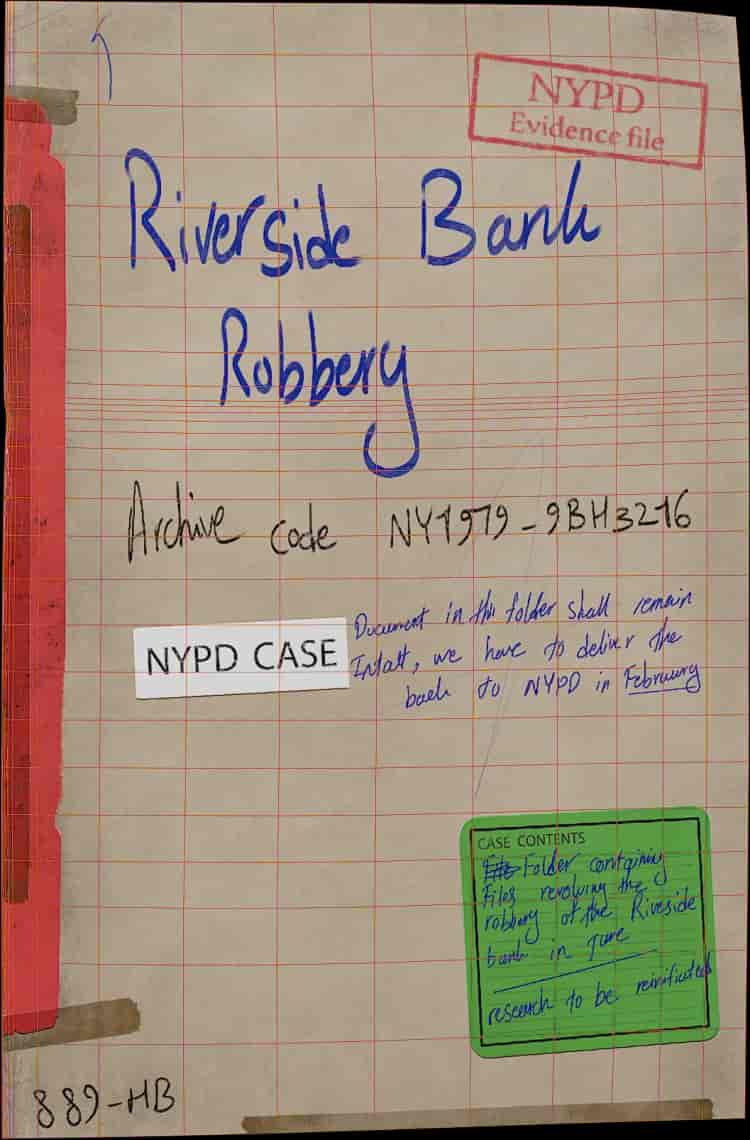 NYPD
Evidence file
Riverside Bank
Robbery
Archive code NY1979-9BH3216
NYPD CASE
Document in this folder shall remain
Intatt, we have to deliver the
back to NYPD in February
CASE CONTENTS
Folder containing
Files revolving the
robbery of the Riveside
bank in June
research to be
889-HB